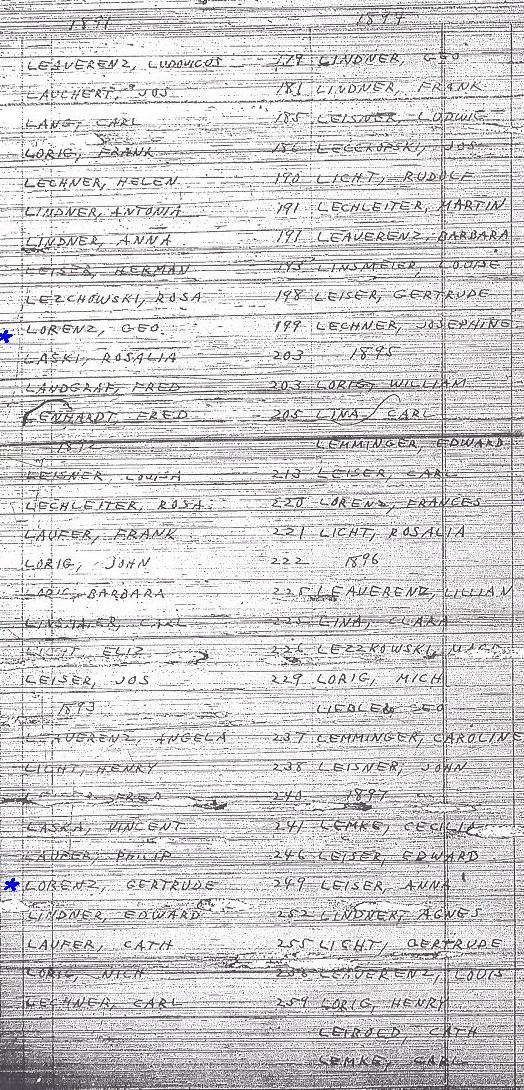 1891
LEAVERENZ, LUDOVICUS 179
LAUCHERT, JOS 181
LANG, CARL 185
LORIG, FRANK 186
LECHNER, HELEN 190
LINDNER, ANTONIA 191
LINDNER, ANNA 191
LEISER, HERMAN 195
LEZCHOWSKI, ROSA 198
LORENZ, GEO. 199
LASKI, ROSALIA 203
LANDGRAF, FRED 203
LENHARDT, FRED 205
1892
LEISNER, LOUISA 213
LECHLEITER, ROSA 220
LAUFER, FRANK 221
LORIG, JOHN 222
LORIG, BARBARA 225
LINSMAIER, CARL 225
LICHT, ELIZ 226
LEISER, JOS 229
1893
LEAVERENZ, ANGELA 237
LICHT, HENRY 238
FRED 240
LASKA, VINCENT 241
LAUFER, PHILIP 246
LORENZ, GERTRUDE 249
LINDNER, EDWARD 252
LAUFER, CATH 255
LORIG, NICH 256
LECHNER, CARL 259
1894
LINDNER, GEO
LINDNER, FRANK
LEISNER, LUDWIG
JOS
LICHT, RUDOLF
LECHLEITER, MARTIN
LEAVERENZ, BARBARA
LINSMEIER, LOUISE
LEISER, GERTRUDE
LECHNER, JOSEPHINE
1895
LORIG, WILLIAM
LINA, CARL
LEMMINGER, EDWARD
LEISER, CARL
LORENZ, FRANCES
LICHT, ROSALIA
1896
LEAVERENZ, LILLIAN
LINA, CLARA
LEZZKOWSKI,
LORIG, MICH
LIEDLER, GEO
LEMMINGER, CAROLINE
LEISNER, JOHN
1897
LEMKE, CECILIA
LEISER, EDWARD
LEISER, ANNA
LINDNER, AGNES
LICHT, GERTRUDE
LEAVERENZ, LOUIS
LORIG, HENRY
LEIBOLD, CATH
CARL